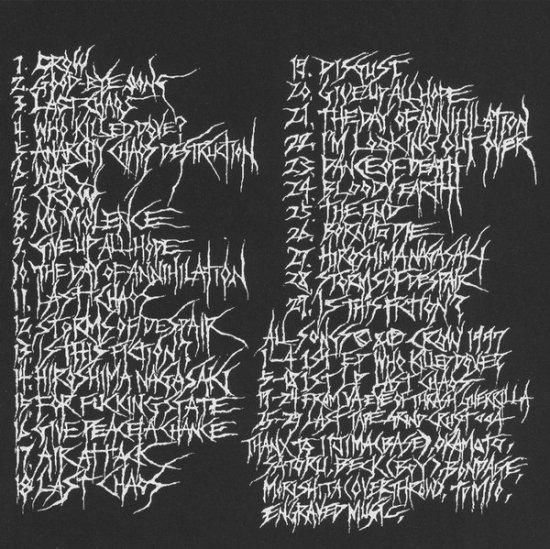 1. CROW
2. GOOD-BYE SONG
3. LAST CHAOS
4. WHO KILLED DOVE?
5. ANARCHY CHAOS DESTRUCTION
6. WAR
7. CROW
8. NO VIOLENCE
9. GIVE UP ALL HOPE
10. THE DAY OF ANNIHILATION
11. LAST CHAOS
12. STORMS OF DESPAIR
13. IS THIS FICTION?
14. HIROSHIMA NAGASAKI
15. FOR FUCKING STATE
16. GIVE PEACE A CHANCE
17. AIR ATTACK
18. LAST CHAOS
19. DISGUST
20. GIVE UP ALL HOPE
21. THE DAY OF ANNIHILATION
22. I'M LOOKING OUT OVER
23. DANCE OF DEATH
24. BLOODY EARTH
25. THE END
26. BORN TO DIE
27. HIROSHIMA NAGASAKI
28. STORMS OF DESPAIR
29. IS THIS FICTION?
ALL SONGS CROW 1997
1-4 1ST E.P WHO KILLED DOVE?
5-18 1ST L.P LAST CHAOS
19-24 FROM V.A EYE OF THRASH GUERRILLA
25-29 LAST TAPE GRIND CRUST
THANX TO IRIMA (BASE), OKAMOTO,
SATORU, BECK (BOY), BONDAGE,
MORISHITA (OVERTHROW), TOMIO,
ENGRAVED MUSIC.